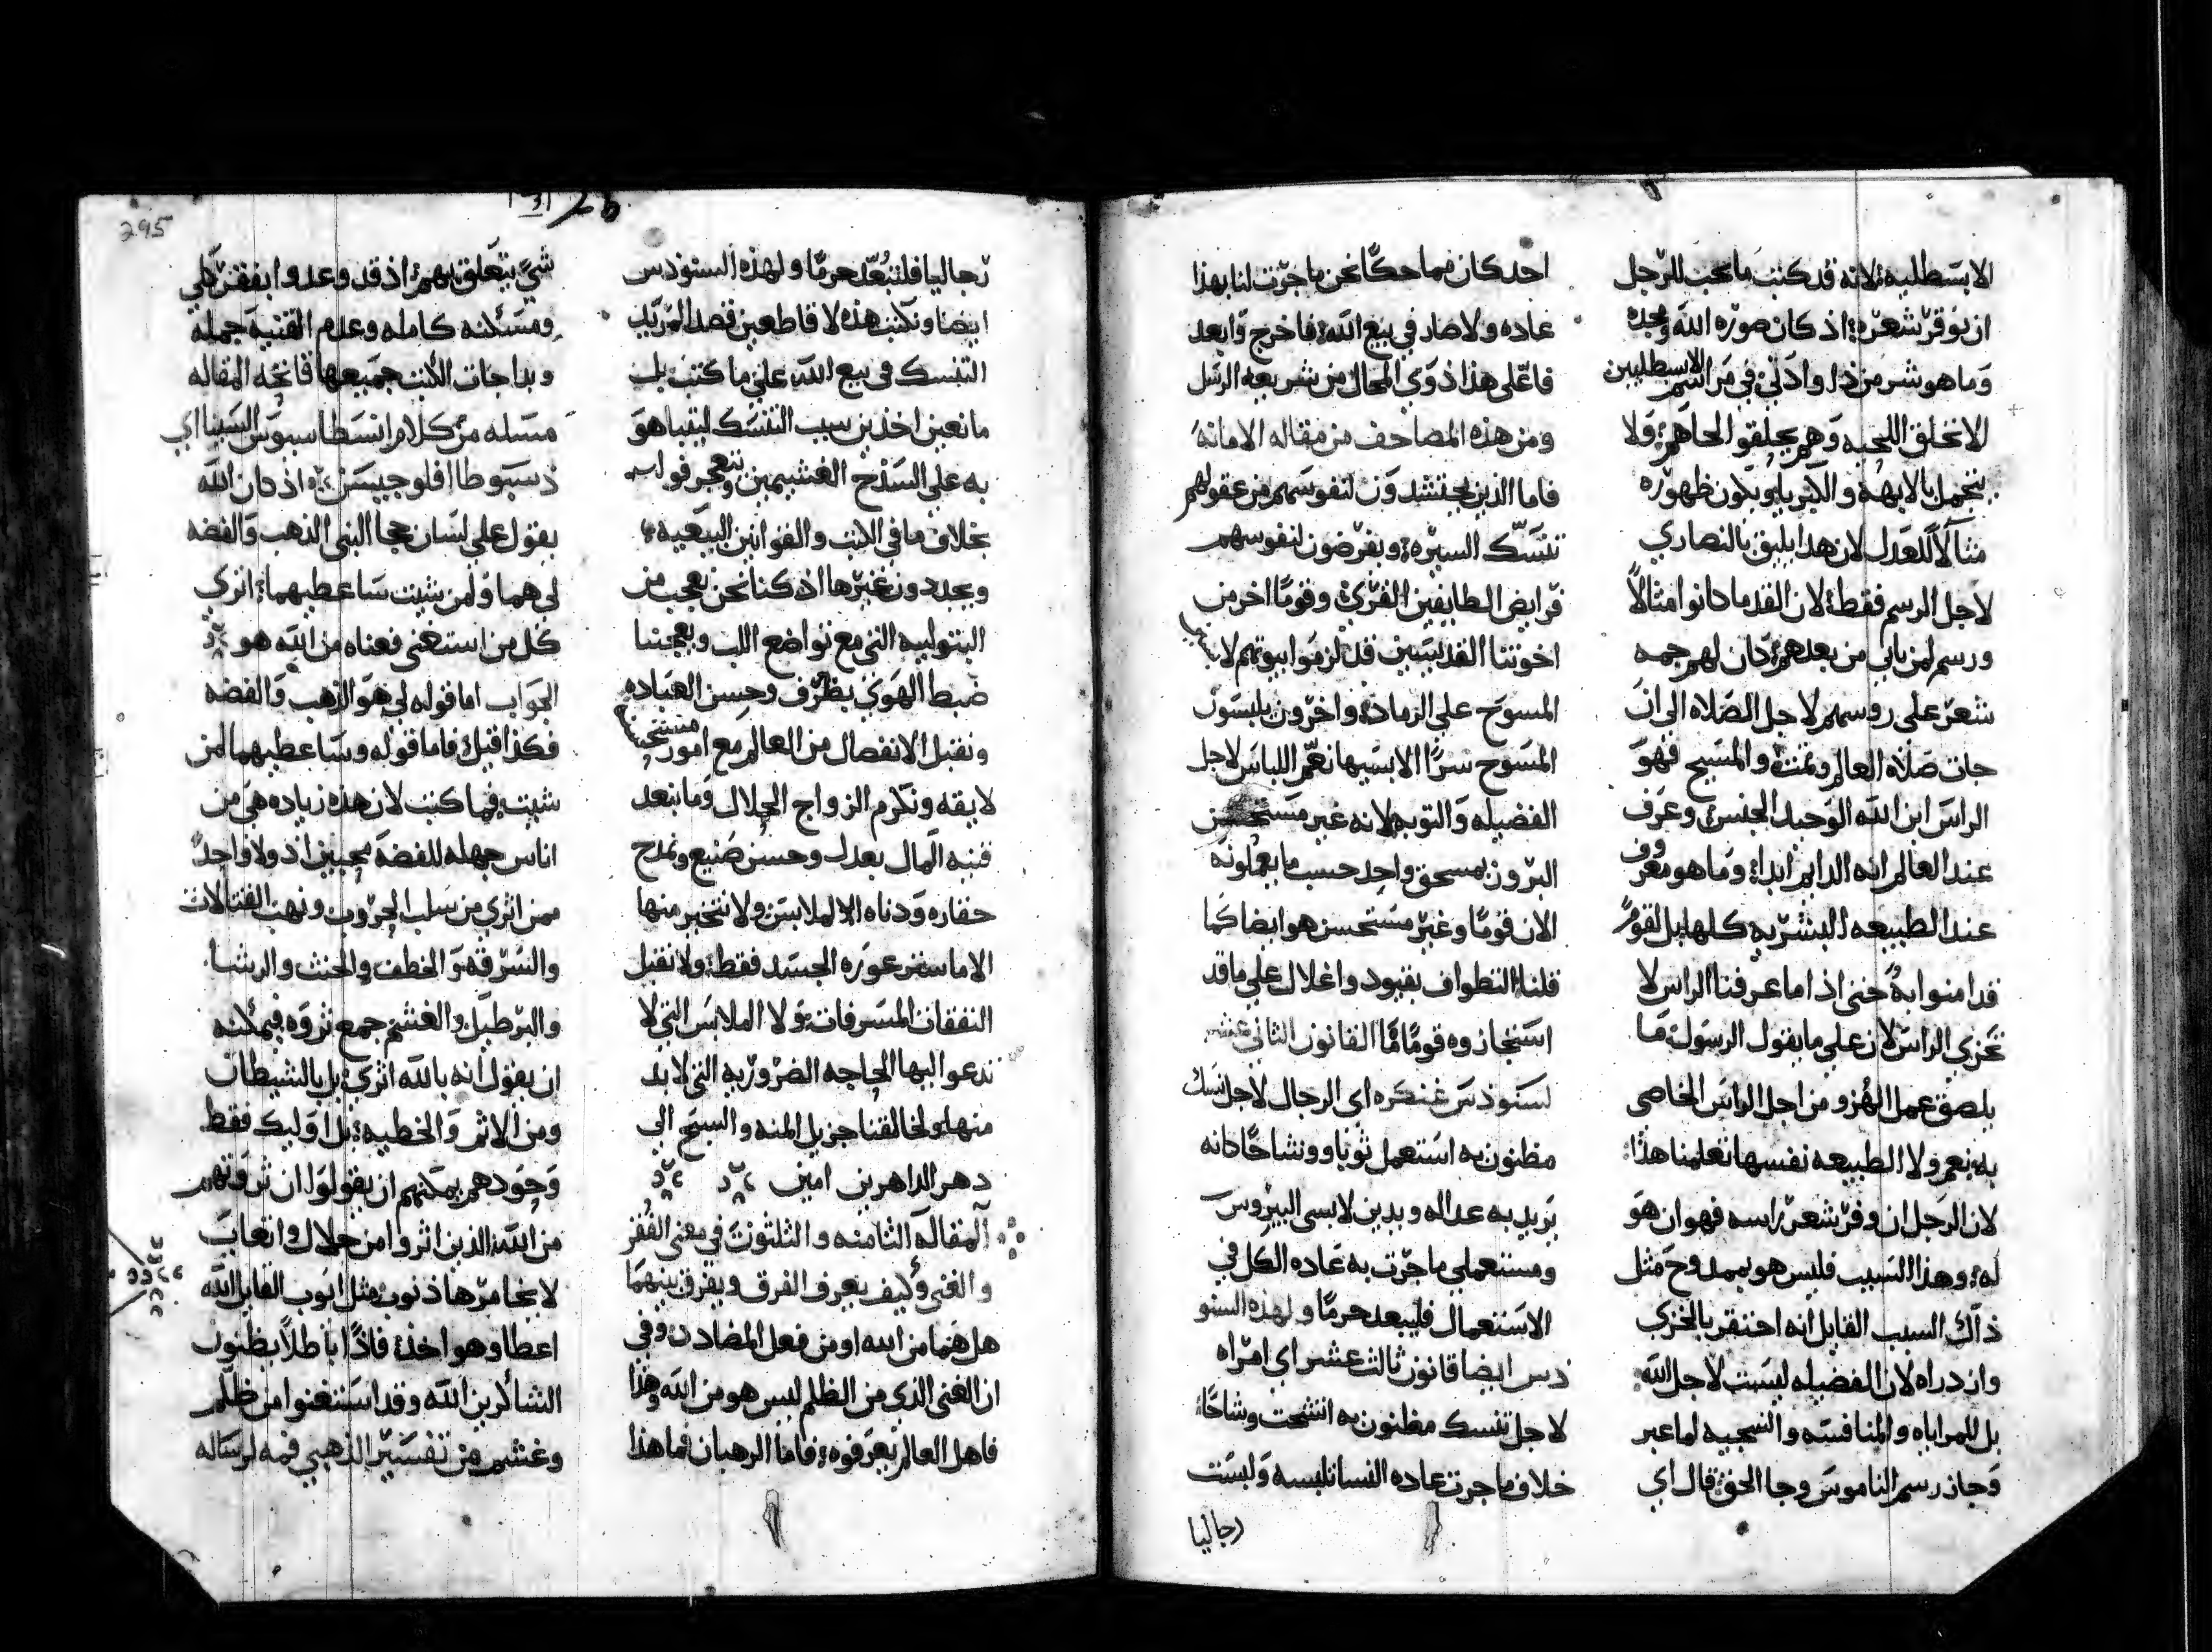 الابسطليه لانه قد كتب ما يجب للرجل
ان يوقر شعره اذ كان صوره الله ومجده
وما هو شر من ذا وادني في مراسم الابسطليين
الا نحلق اللحيه وهم يحلقو لحاهم ولا
نتجمل بالابهه والكبريا ويكون ظهوره
مثالاً للعدل لان هدا يليق بالنصاري
لاجل الرسم فقط لان القدما كانوا مثالاً
ورسم لمن ياتي من بعدهم كان لهم جمه
شعر علي روسهم لاجل الصلاه الي ان
جات صلاه العالم وتمت والمسيح فهو
الراس ابن الله الوحيد الجنس وعرف
عند العالم انه الدايم ابدا وما هو معروف
عند الطبيعه البشريه كلها بل لقوم
قد امنوا به حتي اذ اما عرفنا الراس لا
نخزي الراس لان علي ما يقول الرسول ما
يلصق عمل الهزو من اجل الراس الخاصي
به نعم ولا الطبيعه نفسها تعلمنا هذا
لان الرجل ان وفر شعر راسه فهوان هو
له وهذا السبب فليس هو بممدوح مثل
ذاك السبب القايل انه احتقر بالخزي
وازدراه لان الفضيله ليست لاجل الله
بل للمراياه والمنافسه والسجيه لما عبر
وجاز رسم الناموس وجا الحق قال اي
احد كان مماحكًا نحن ما جرت لنا بهذا
عاده ولا صار في بيع الله فاخرج وابعد
فاعلي هذا ذوي المحال من شريعه الرسل
ومن هذه المصاحف من مقاله الامانه
فاما الذين يحتشدون لنفوسهم من عقولهم
تنسك السيره ويفرضون لنفوسهم
فرايض الطايفين القري وقومًا اخر من
اخوتنا القديسين قد لزموا بيوتهم لا
المسوح علي الرماد واخرون يلبسون
المسوح سرًا الا بسيها نعم اللباس لاجل
الفضيله والتوبه لانه غير مستحسن
البرون بمسحق واحد حسب ما يعملونه
الان قومًا وغير مستحسن هو ايضا كما
قلنا التطواف بقيود واغلال علي ما قد
استجازوه قومًا ما القانون الثاني عشر
لسنوذس غنكره اي الرجال لاجل نسك
مظنون به استعمل ثوبا ووشاحًا كانه
يريد به عداله ويدين لابسي البيروس
ومستعملي ما جرت به عاده الكل في
الاستعمال فليبعد حرمًا ولهذه السنو
ذس ايضا قانون ثالث عشر اي امراه
لاجل تنسك مظنون به اتشحت وشاحًا
خلاف ما جرت عاده النسا تلبسه ولبست
رجاليا
رجاليا فلتبعد حرمًا ولهذه السنوذس
ايضا ونكتب هذه لا قاطعين قصد المريد
التنسك في بيع الله علي ما كتب بل
مانعين اخذين سبب التنسك ليتباهو
به علي السذح الغشيمين وتعجرفوا
بخلاف ما في الكتب والقوانين البيعيه
ويجددون غيرها اذ كنا نحن نعجب من
البتوليه التي مع تواضع اللب ويعجبنا
ضبط الهوي بظرف وحسن العباده
ونقبل الانفصال من العالم مع امور مستحبا
لايقه ونكرم الزواج الحلال وما نبعد
قنيه المال بعدل وحسن صنيع ونمدح
حقاره ودناه الملابس ولا نتخير منها
الا ما ستر عوره الجسد فقط ولا نقبل
النفقات المسرفات ولا الملابس التي لا
تدعو اليها الحاجه الضروريه التي لا بد
منها ولخالقنا جزيل المنه والسبح الي
دهر الداهرين امين
المقاله الثامنه والثلثون في معني الفقر
والغني وكيف يعرف الفرق ويفرق بينهما
هل هما من الله او من فعل المضادن وفي
ان الغني الذي من الظلم ليس هو من الله وهذا
فاهل العالم يعرفوه فاما الرهبان فما هذا
295
شي يتعلق بهم اذ قد وعدوا بفقر كلي
ومسكنه كامله وعدم القنيه جمله
وبدا جات الكتب جميعها فاتحه المقاله
مسله من كلام انسطاسيوس السينا اي
ذسبوطا افلوجيسن اذ كان الله
يقول علي لسان حجا النبي الذهب والفضه
لي هما ولمن شيت ساعطيهما اتري
كل من استغني فغناه من الله هو
الجواب اما قوله لي هو الذهب والفضه
فكذا قيل فاما قوله وساعطيهما لمن
شيت فما كتب لان هذه زياده هي من
اناس جهله للفضه محبين اذ ولا واحد
ممن اثري من سلب الحروب ونهب القتالات
والسرقه والخطف والحنث والرشا
والبرطيل والغشم جمع ثروه فيمكنه
ان يقول انه بالله اثري بل بالشيطان
ومن الاثم والخطيه بل اوليك فقط
وحودهم يمكنهم ان يقولوا ان ثروتهم
من الله الذين اثروا من حلال واتعاب
لا يخامرها ذنوب مثل ايوب القايل الله
اعطا وهو اخذ فاذًا باطلاً يظنون
الشاكرين الله وقد استغنوا من ظلم
وغشم من تفسير الذهبي فمه لرساله